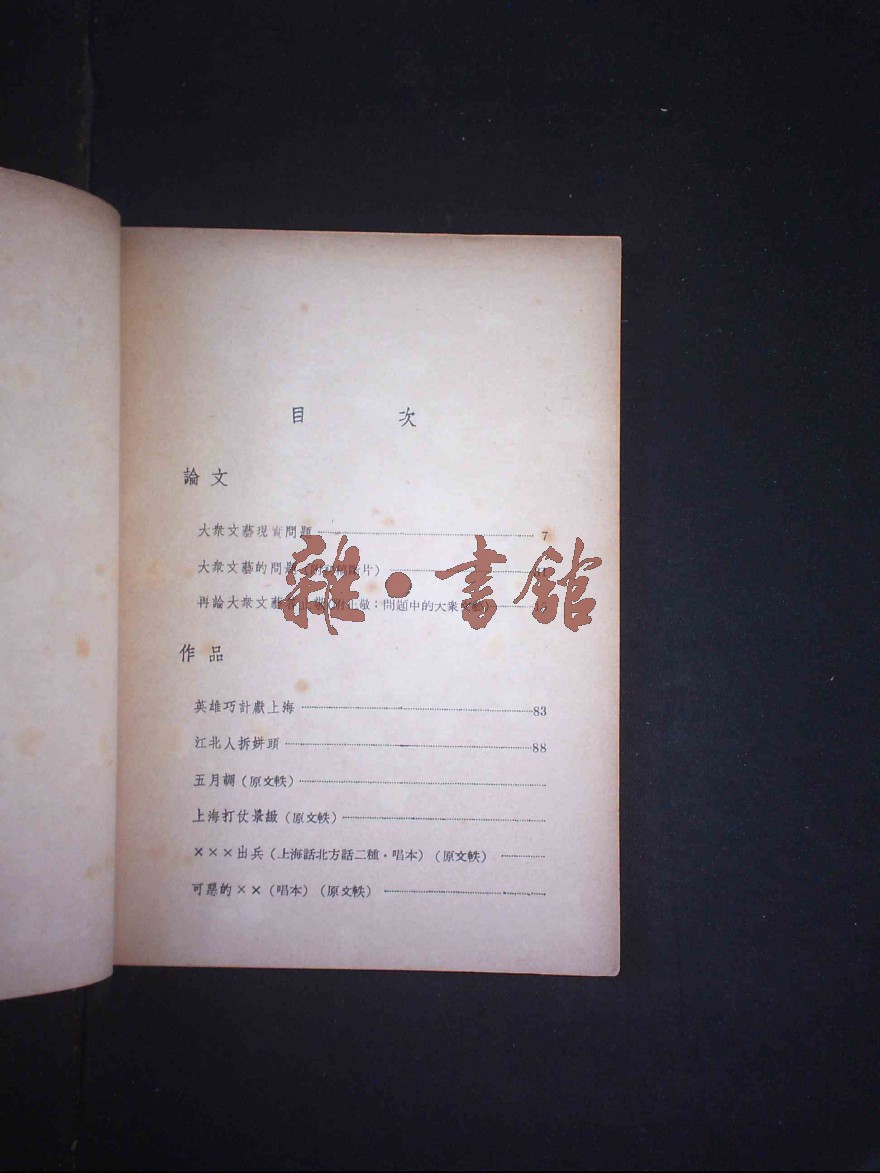 目 次
論文
大衆文藝現實問題 7
大衆文藝的問題(附 片)
再論大衆文藝答止敬(附止敬:問題中的大衆文藝)
作品
英雄巧計獻上海 83
江北人拆姘頭 88
五月調(原文軼)
上海打仗景緻(原文軼)
×××出兵(上海話北方話二種·唱本)(原文軼)
可惡的××(唱本)(原文軼)
雜·書館